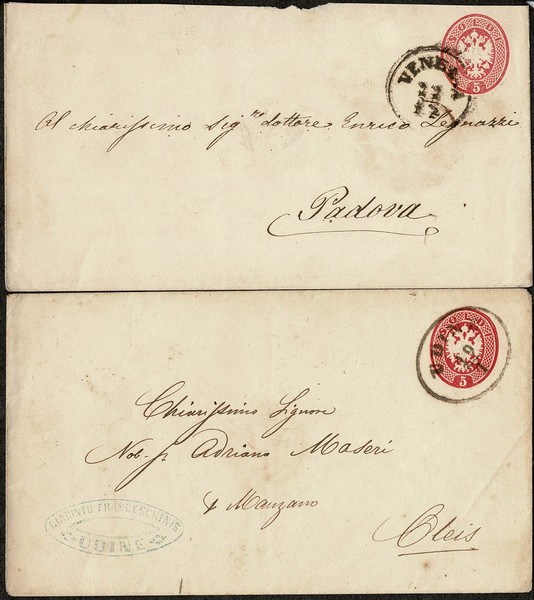 SOLDI
5
VENEZIA
Al chiarissimo Sig.re dottore Enrico Legnazzi
Padova
SOLDI
5
UDINE
Chiarissimo Signore
Nob. Sr. Adriano Maseri
Manzano
Cleis
GIACINTO FRANCESCHINIS
UDINE